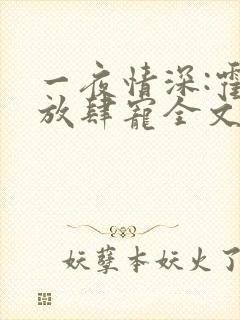 一夜情深:霍
放肆宠全文
妖孽本妖火了